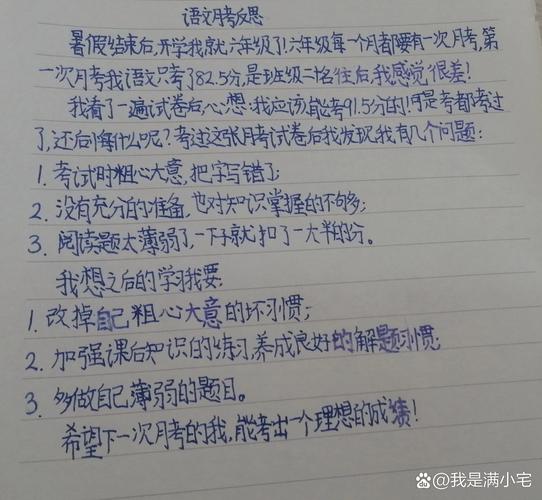 语文月考反思
暑假结束后,开学我就六年级了!六年级每一个月都要有一次月考,第
一次月考我语文只考了82.5分,是班级二十名往后,我感觉很差!
我看了一遍试卷后,心想:我应该能考91.5分的!可是考都考过
了,还后悔什么呢?考过这张月考试卷后我发现,我有几个问题:
1. 考试时粗心大意,把字写错了;
2. 没有充分的准备,也对知识掌握的不够多;
3. 阅读题太薄弱了,一下子就扣了一大半的分。
我想之后的学习我要:
1. 改掉自己粗心大意的坏习惯;
2. 加强课后知识的练习,养成良好的解题习惯;
3. 多做自己薄弱的题目。
希望下一次月考的我,能考出一个理想的成绩!
@我是满小宅